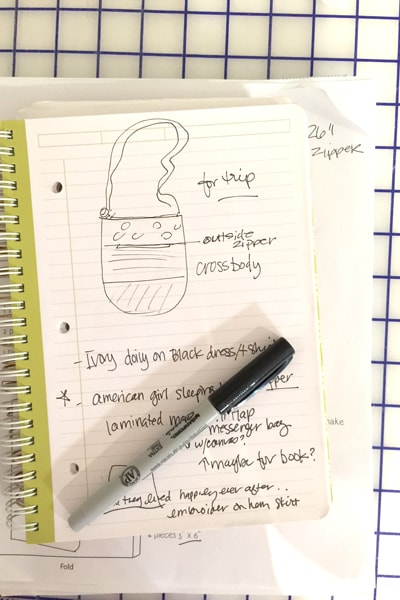 26"
zipper
for trip
outside
zipper
crossbody
- Ivory doily on Black dress/
american girl sleeping
laminated
flap
messenger bag
w/canvas?
↑ maybe for book?
they lived happily ever after..
embroider on hem skirt
pieces 3" x 6"
Fold